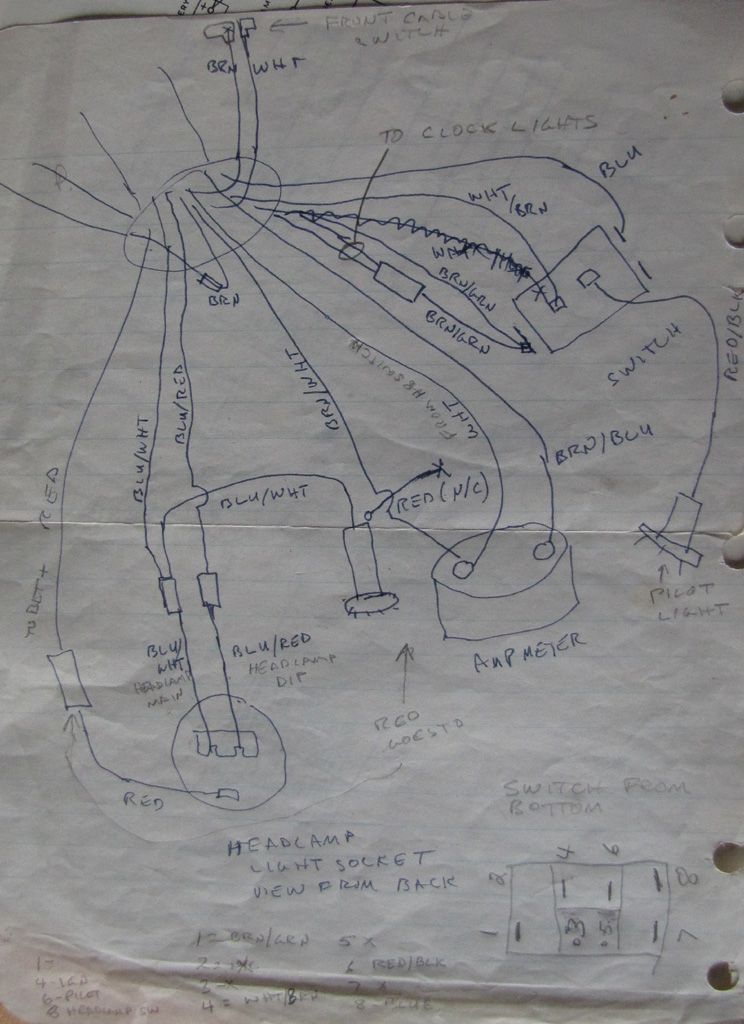 FRONT CABLE
SWITCH
BRN
WHT
TO CLOCK LIGHTS
BLU
WHT/BRN
BRN/GRN
BRN/GRN
SWITCH
RED/BLK
BRN
BLU/RED
BLU/WHT
BRN/WHT
WHT
BRN/BLU
RED
TO BATT+
BLU/WHT
RED (N/C)
PILOT
LIGHT
AMPMETER
BLU/
WHT
HEADLAMP
MAIN
BLU/RED
HEADLAMP
DIP
RED
GOES TO
RED
HEADLAMP
LIGHT SOCKET
VIEW FROM BACK
SWITCH FROM
BOTTOM
2 4 6 8
1 3 5 7
1 = BRN/GRN 5 X
6 RED/BLK
3 - X 7 X
4 = WHT/BRN 8 - BLUE
1 =
4 - IGN
6 - PILOT
8 HEADLAMP SW